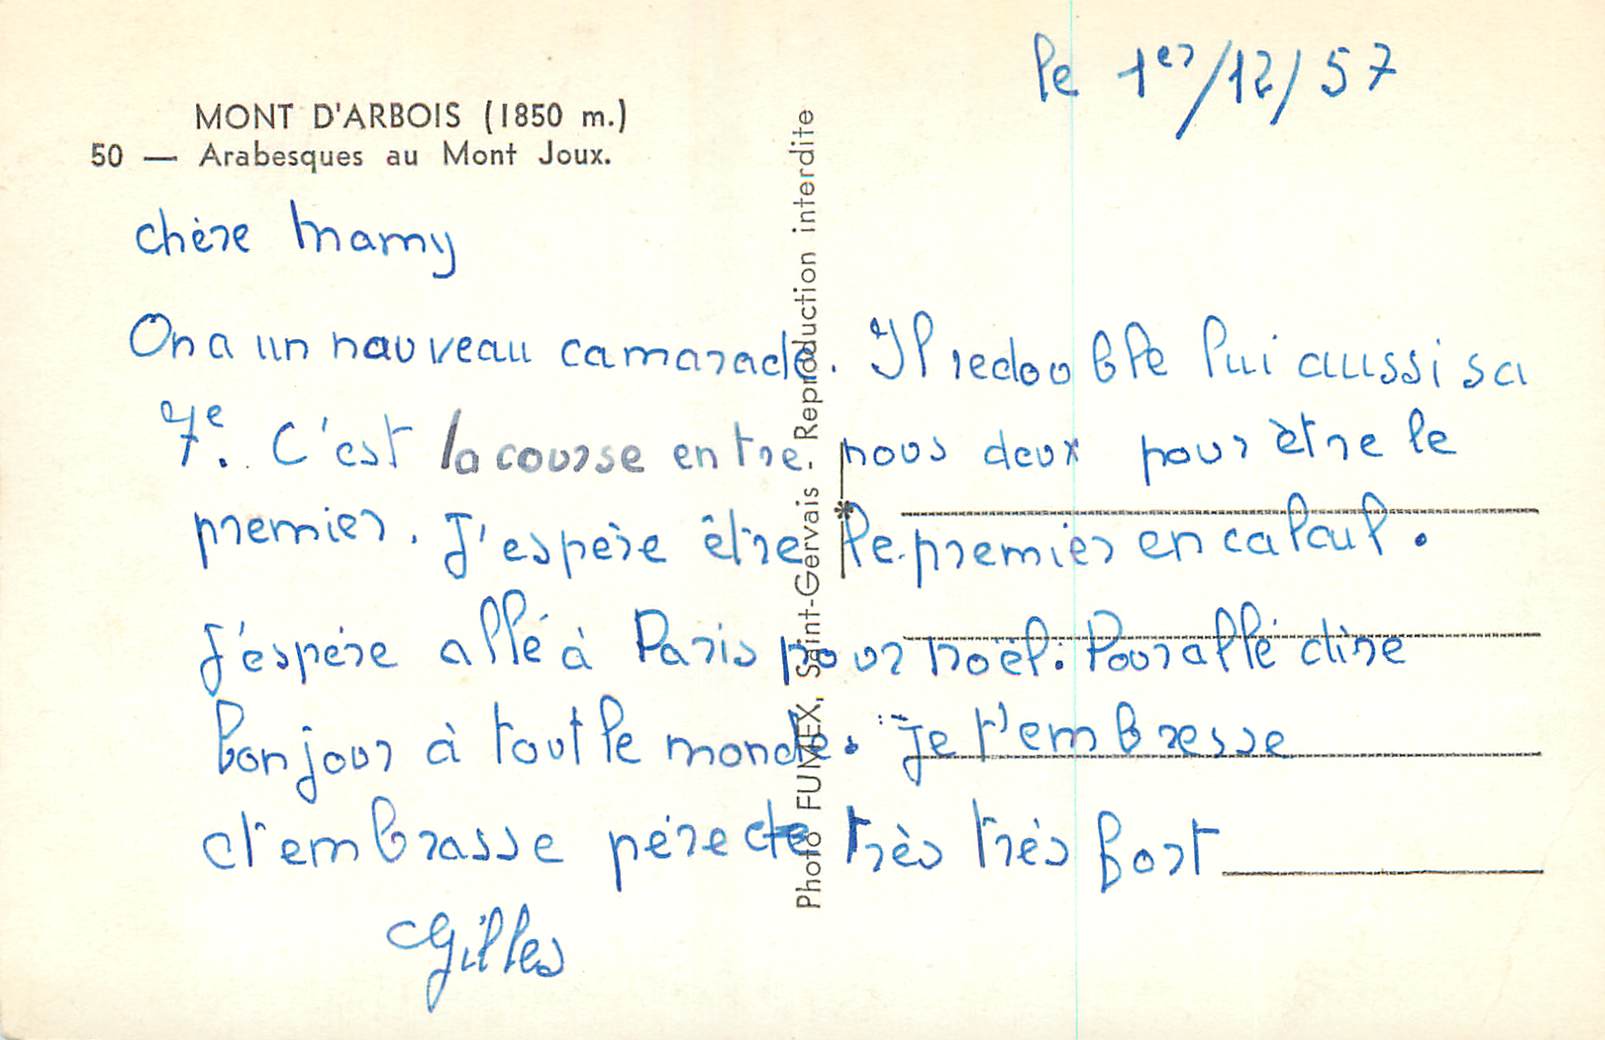 le 1er/12/57
MONT D'ARBOIS (1850 m.)
50 — Arabesques au Mont Joux.
chère Mamy
On a un nauveau camarade. Il redouble lui aussi sa
7e. C'est la course entre nous deux pour être le
premier. J'espère être le premier en calcul.
J'éspère allé à Paris pour noël. Pour allé dire
bonjour à tout le monde. Je t'embresse
t'embrasse père de très très fort
Gilles
Photo FUMEX, Saint-Gervais. Reproduction interdite